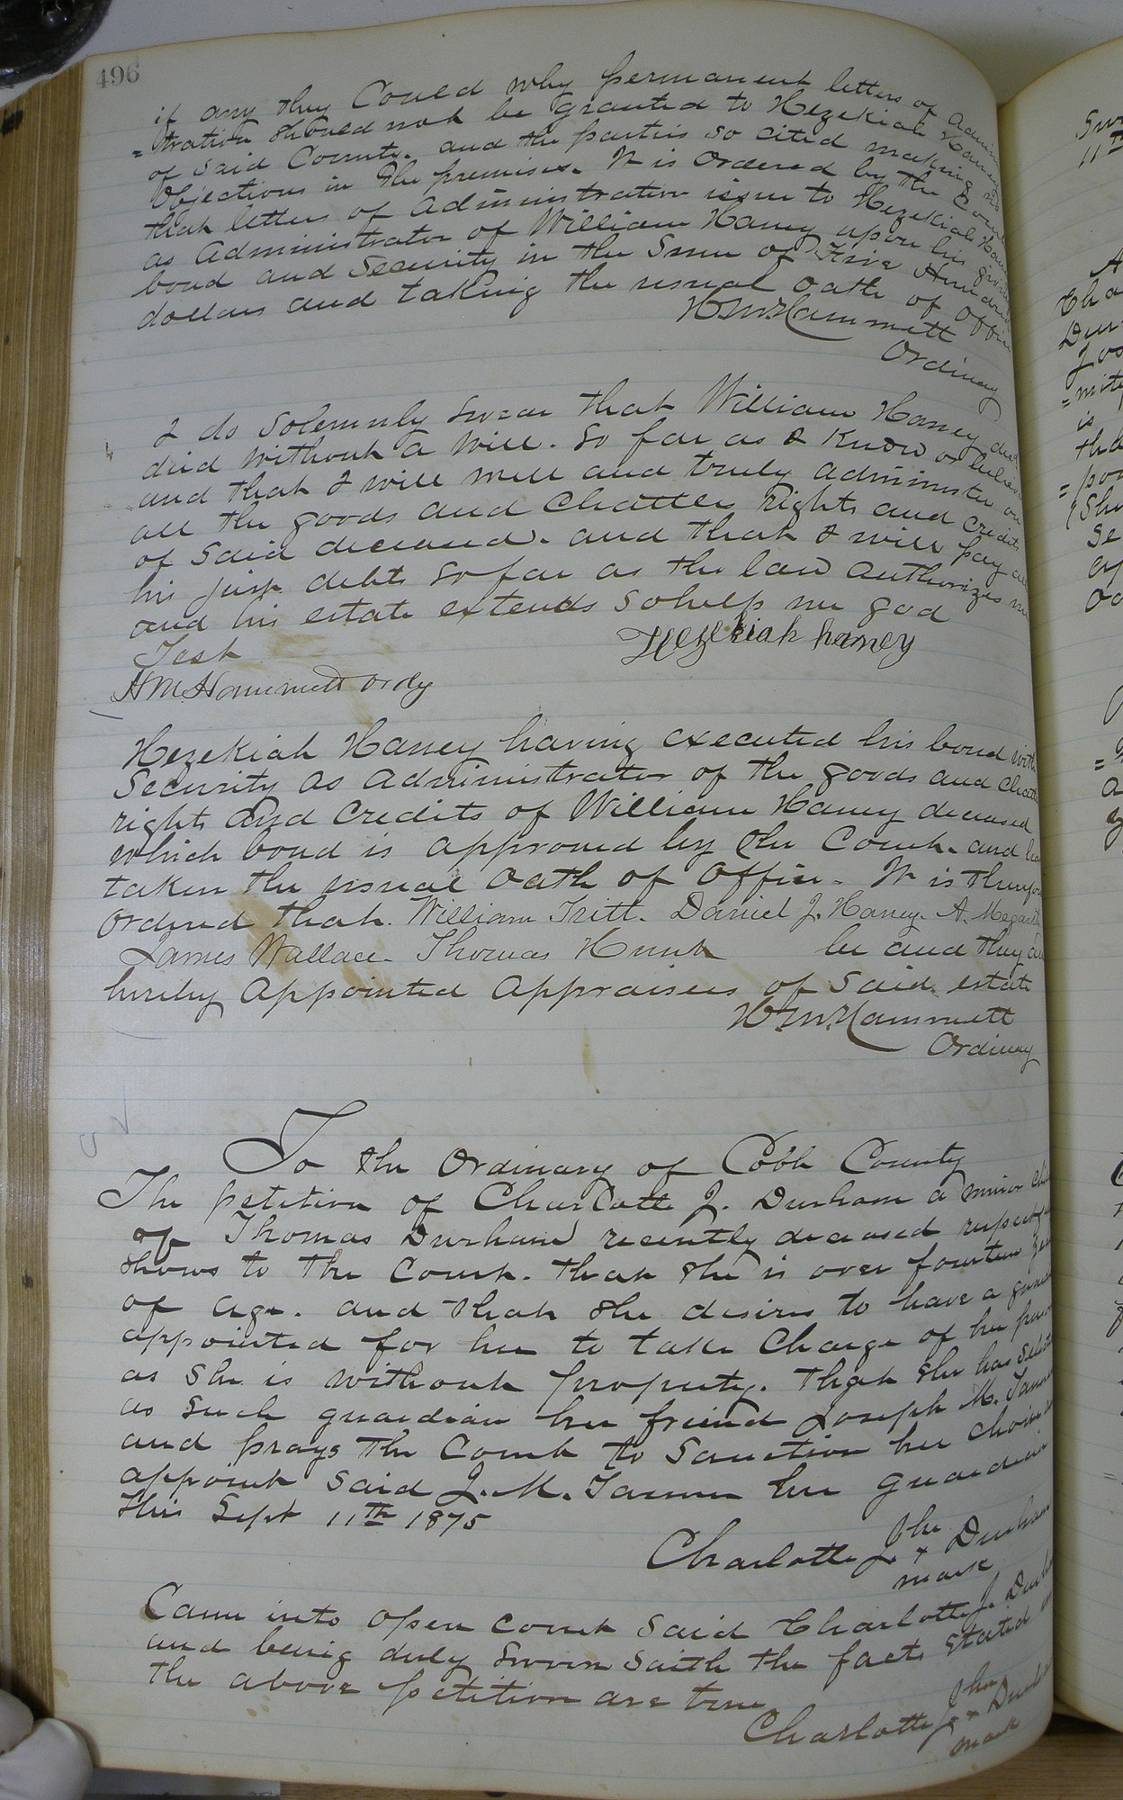 496
if any they Could why permanent letters of Admin
=tration should not be granted to Hezekiah Haney
of said County. and the parties so cited making no
Objections in the premises. It is ordered by the Court
that letters of Administration issue to Hezekiah Haney
as Administrator of William Haney upon his giving
bond and Security in the Sum of Five Hundred
dollars and taking the usual oath of office
H M Hammett
Ordinary
I do Solemnly Swear that William Haney decd
died without a Will. So far as I Know or believe
and that I will well and truly administer on
all the goods and Chattles rights and credits
of said deceased. and that I will pay all
his just debts so far as the law authorizes me
and his estate extends So help me god
Test
Hezekiah haney
H M Hammett Ordy
Hezekiah Haney having executed his bond with
Security as Administrator of the goods and chattles
rights and Credits of William Haney deceased
which bond is approved by the Court. and has
taken the usual Oath of Office. It is therefore
Ordered that. William Tritt. Daniel J. Haney. A.
James Wallace. Thomas Hunt be and they are
hereby Appointed Appraisers of said estate
H M Hammett
Ordinary
To the Ordinary of Cobb County
The petition of Charlotte J. Durham a minor child
of Thomas Durham recently deceased respectfully
shows to the Court. that she is over fourteen years
of age. and that she desires to have a guardian
appointed for her to take Charge of her person
as she is without property. that she has selected
as such guardian her friend Joseph M. Tanner
and prays the Court to Sanction her choice and
appoint said J. M. Tanner her guardian
this Sept 11th 1875
her
Charlotte J. + Durham
mark
Came into open court said Charlotte J. Durham
and being duly sworn saith the facts stated in
the above petition are true
her
Charlotte J. + Durham
mark